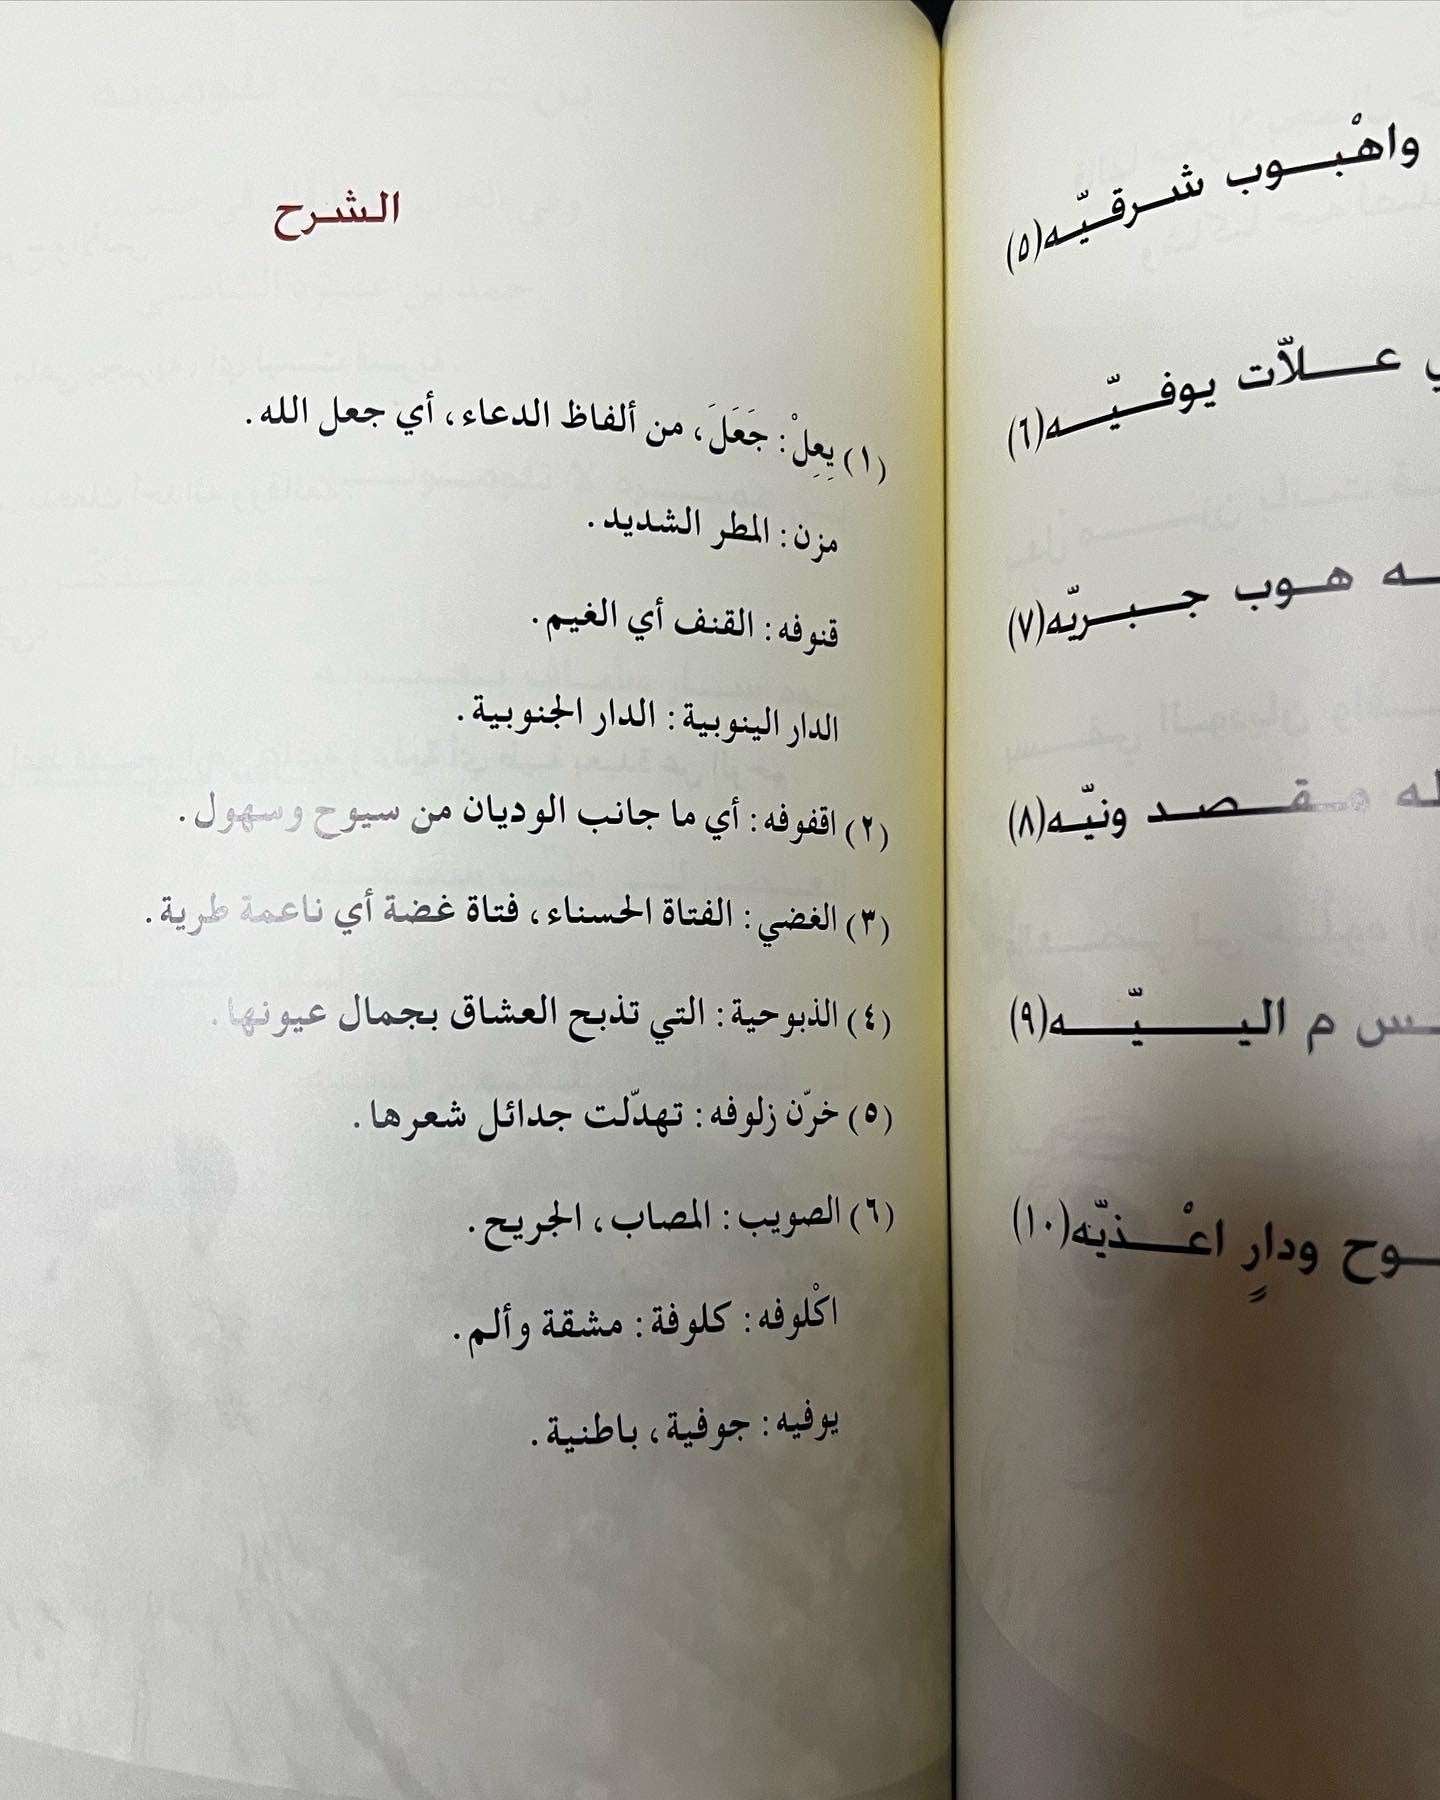 واهْبـوب شـرقـيّـه(٥)
عـلاّت يوفـيّـه(٦)
ـه هـوب جـبـريّـه(٧)
ـله مـقـصـد ونيّـه(٨)
ـس م الـيـّـه(٩)
ـوح ودارٍ اعْـذيّـه(١٠)
الشرح
(١) يِعِلْ: جَعَلَ، من ألفاظ الدعاء، أي جعل الله.
مزن: المطر الشديد.
قنوفه: القنف أي الغيم.
الدار الينوبية: الدار الجنوبية.
(٢) اقفوفه: أي ما جانب الوديان من سيوح وسهول.
(٣) الغضي: الفتاة الحسناء، فتاة غضة أي ناعمة طرية.
(٤) الذبوحية: التي تذبح العشاق بجمال عيونها.
(٥) خرّن زلوفه: تهدّلت جدائل شعرها.
(٦) الصويب: المصاب، الجريح.
اكْلوفه: كلوفة: مشقة وألم.
يوفيه: جوفية، باطنية.